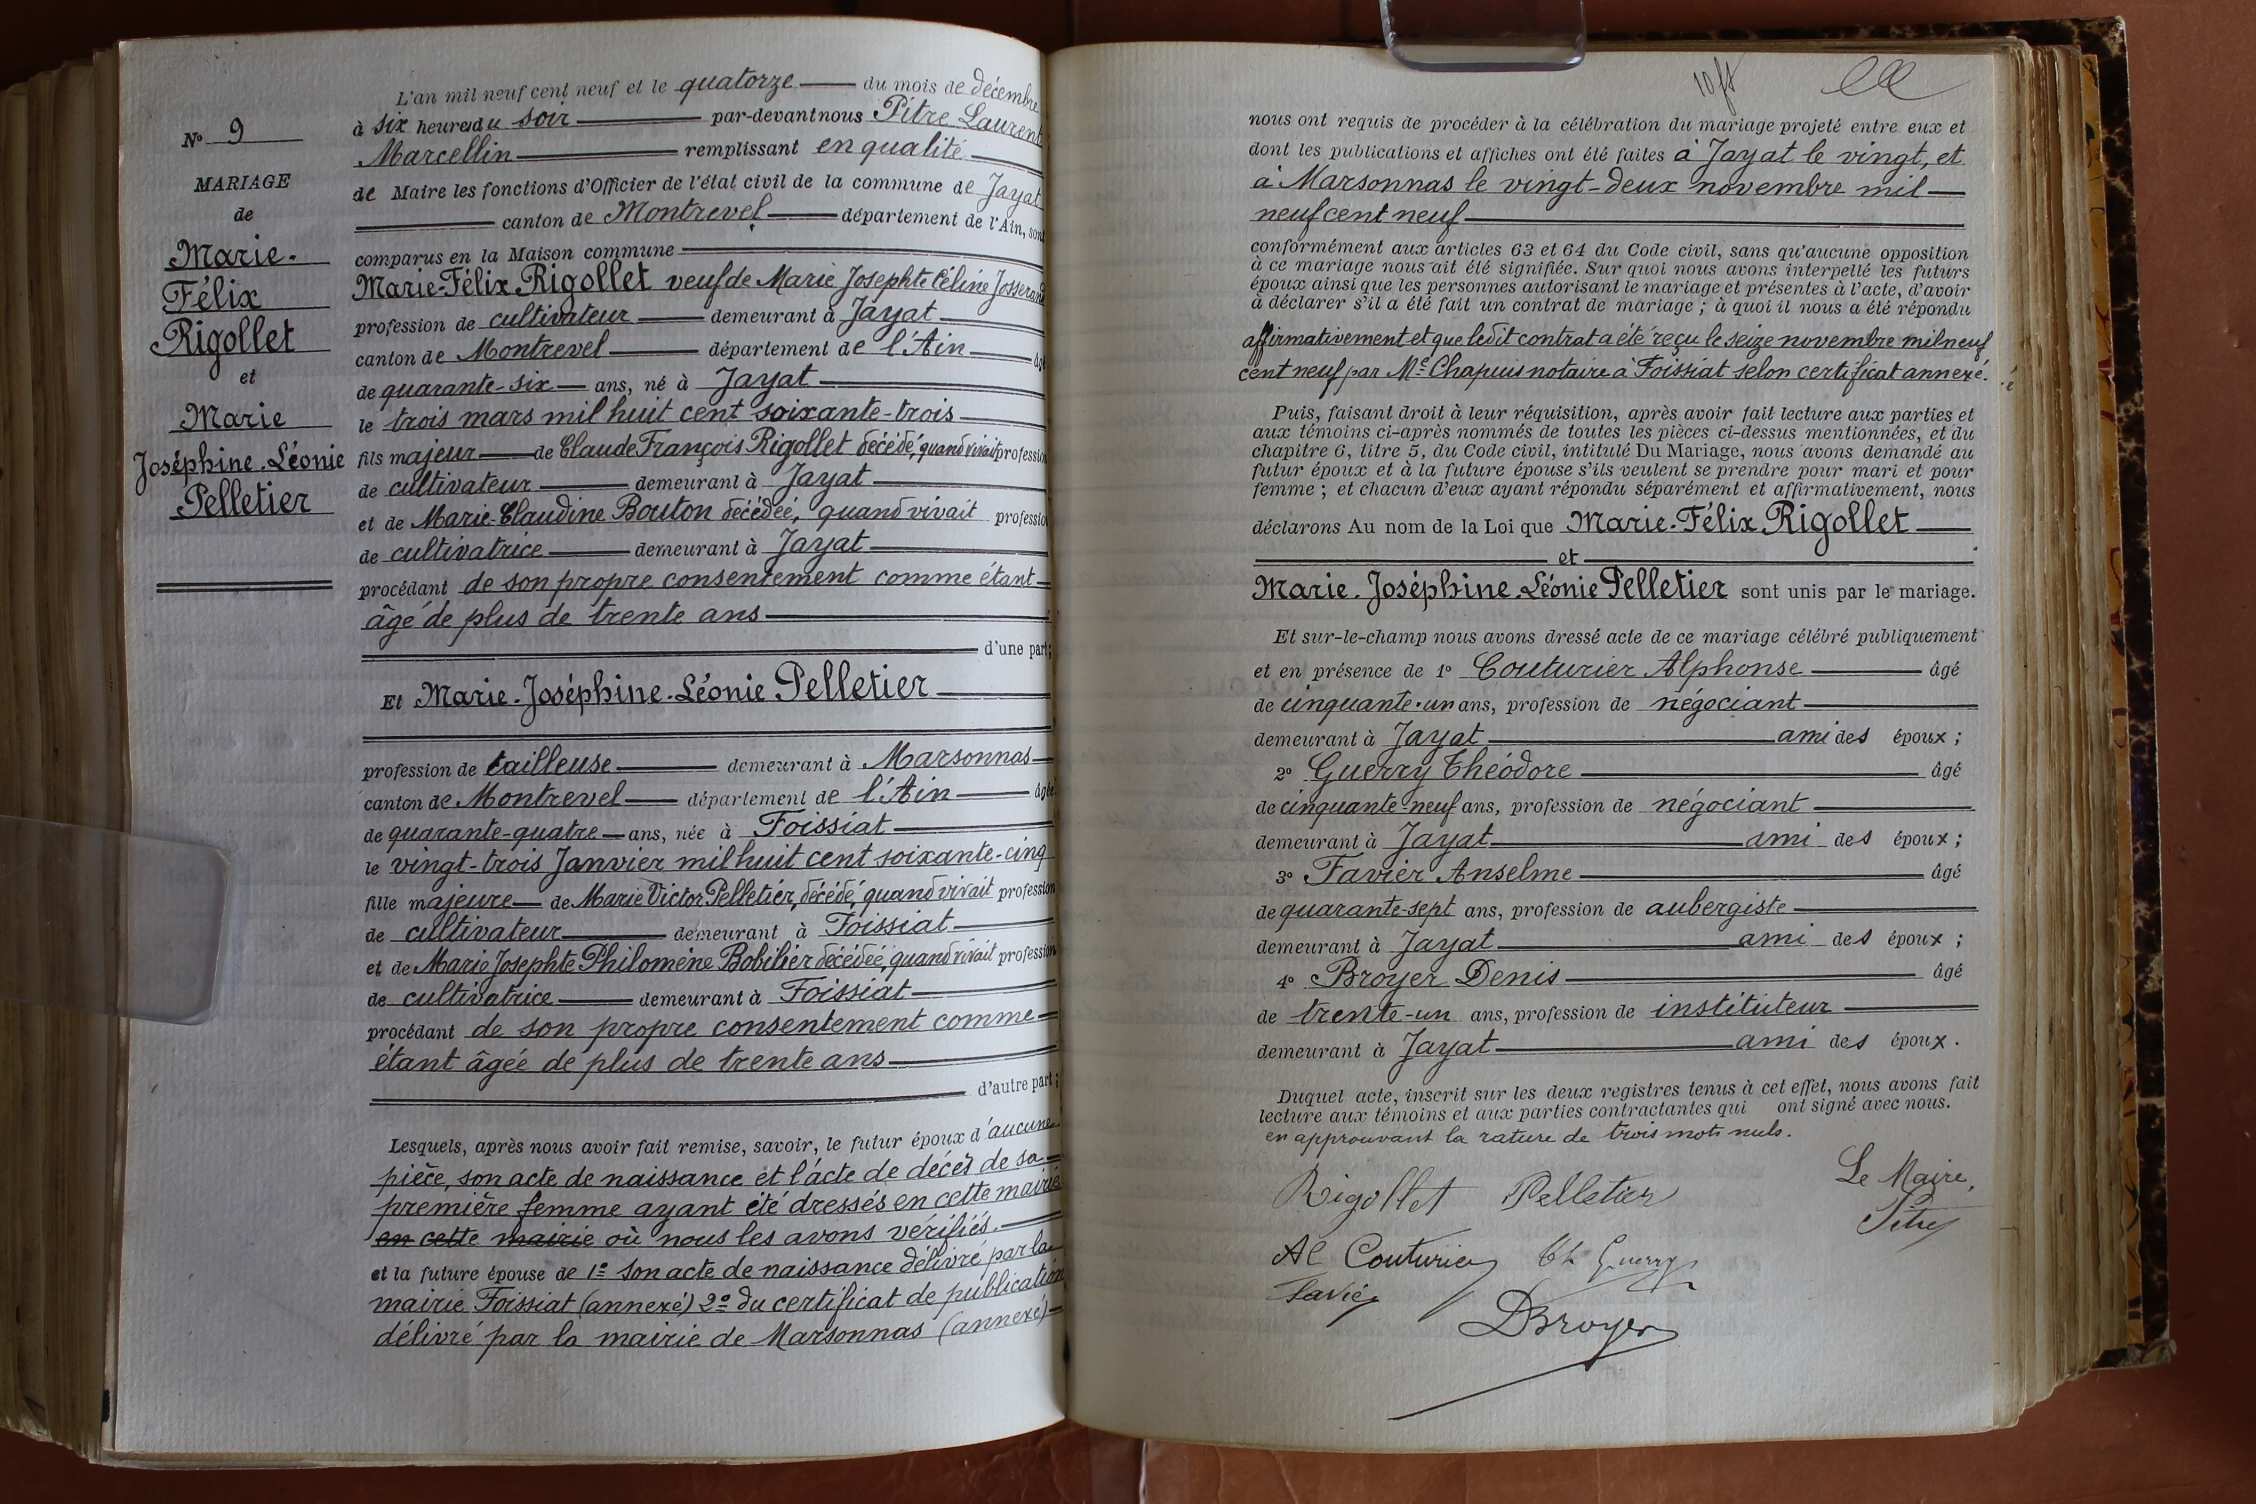 N° 9
MARIAGE
de
Marie-
Félix
Rigollet
et
Marie
Joséphine-Léonie
Pelletier
L'an mil neuf cent neuf et le quatorze du mois de décembre
à six heures du soir par-devant nous Pitre Laurent
Marcellin remplissant en qualité
de Maire les fonctions d'Officier de l'état civil de la commune de Jayat
canton de Montrevel département de l'Ain, sont
comparus en la Maison commune
Marie-Félix Rigollet veuf de Marie Josephte Céline Josserand
profession de cultivateur demeurant à Jayat
canton de Montrevel département de l'Ain âgé
de quarante-six ans, né à Jayat
le trois mars mil huit cent soixante-trois
fils majeur de Claude François Rigollet décédé, quand vivait profession
de cultivateur demeurant à Jayat
et de Marie-Claudine Bouton décédée, quand vivait profession
de cultivatrice demeurant à Jayat
procédant de son propre consentement comme étant
âgé de plus de trente ans
d'une part;
Et Marie-Joséphine-Léonie Pelletier
profession de tailleuse demeurant à Marsonnas
canton de Montrevel département de l'Ain âgée
de quarante-quatre ans, née à Foissiat
le vingt-trois Janvier mil huit cent soixante-cinq
fille majeure de Marie Victor Pelletier, décédé, quand vivait profession
de cultivateur demeurant à Foissiat
et de Marie Josephte Philomène Bobilier décédée, quand vivait profession
de cultivatrice demeurant à Foissiat
procédant de son propre consentement comme
étant âgée de plus de trente ans
d'autre part;
Lesquels, après nous avoir fait remise, savoir, le futur époux d'aucune
pièce, son acte de naissance et l'acte de décès de sa
première femme ayant été dressés en cette mairie
en cette mairie où nous les avons vérifiés.
et la future épouse de 1° Son acte de naissance délivré par la
mairie Foissiat (annexé) 2° du certificat de publication
délivré par la mairie de Marsonnas (annexé)
nous ont requis de procéder à la célébration du mariage projeté entre eux et
dont les publications et affiches ont été faites à Jayat le vingt, et
à Marsonnas le vingt-deux novembre mil
neuf cent neuf
conformément aux articles 63 et 64 du Code civil, sans qu'aucune opposition
à ce mariage nous ait été signifiée. Sur quoi nous avons interpellé les futurs
époux ainsi que les personnes autorisant le mariage et présentes à l'acte, d'avoir
à déclarer s'il a été fait un contrat de mariage; à quoi il nous a été répondu
affirmativement et que ledit contrat a été reçu le seize novembre mil neuf
cent neuf par Me Chapuis notaire à Foissiat selon certificat annexé.
Puis, faisant droit à leur réquisition, après avoir fait lecture aux parties et
aux témoins ci-après nommés de toutes les pièces ci-dessus mentionnées, et du
chapitre 6, titre 5, du Code civil, intitulé Du Mariage, nous avons demandé au
futur époux et à la future épouse s'ils veulent se prendre pour mari et pour
femme; et chacun d'eux ayant répondu séparément et affirmativement, nous
déclarons Au nom de la Loi que Marie-Félix Rigollet
et
Marie-Joséphine-Léonie Pelletier sont unis par le mariage.
Et sur-le-champ nous avons dressé acte de ce mariage célébré publiquement
et en présence de 1° Couturier Alphonse âgé
de cinquante-un ans, profession de négociant
demeurant à Jayat ami des époux;
2° Guerry Théodore âgé
de cinquante-neuf ans, profession de négociant
demeurant à Jayat ami des époux;
3° Favier Anselme âgé
de quarante-sept ans, profession de aubergiste
demeurant à Jayat ami des époux;
4° Broyer Denis âgé
de trente-un ans, profession de instituteur
demeurant à Jayat ami des époux.
Duquel acte, inscrit sur les deux registres tenus à cet effet, nous avons fait
lecture aux témoins et aux parties contractantes qui ont signé avec nous.
en approuvant la rature de trois mots nuls.
Rigollet Pelletier Le Maire,
Pitre
Al Couturier Th Guerry
Favier
DBroyer